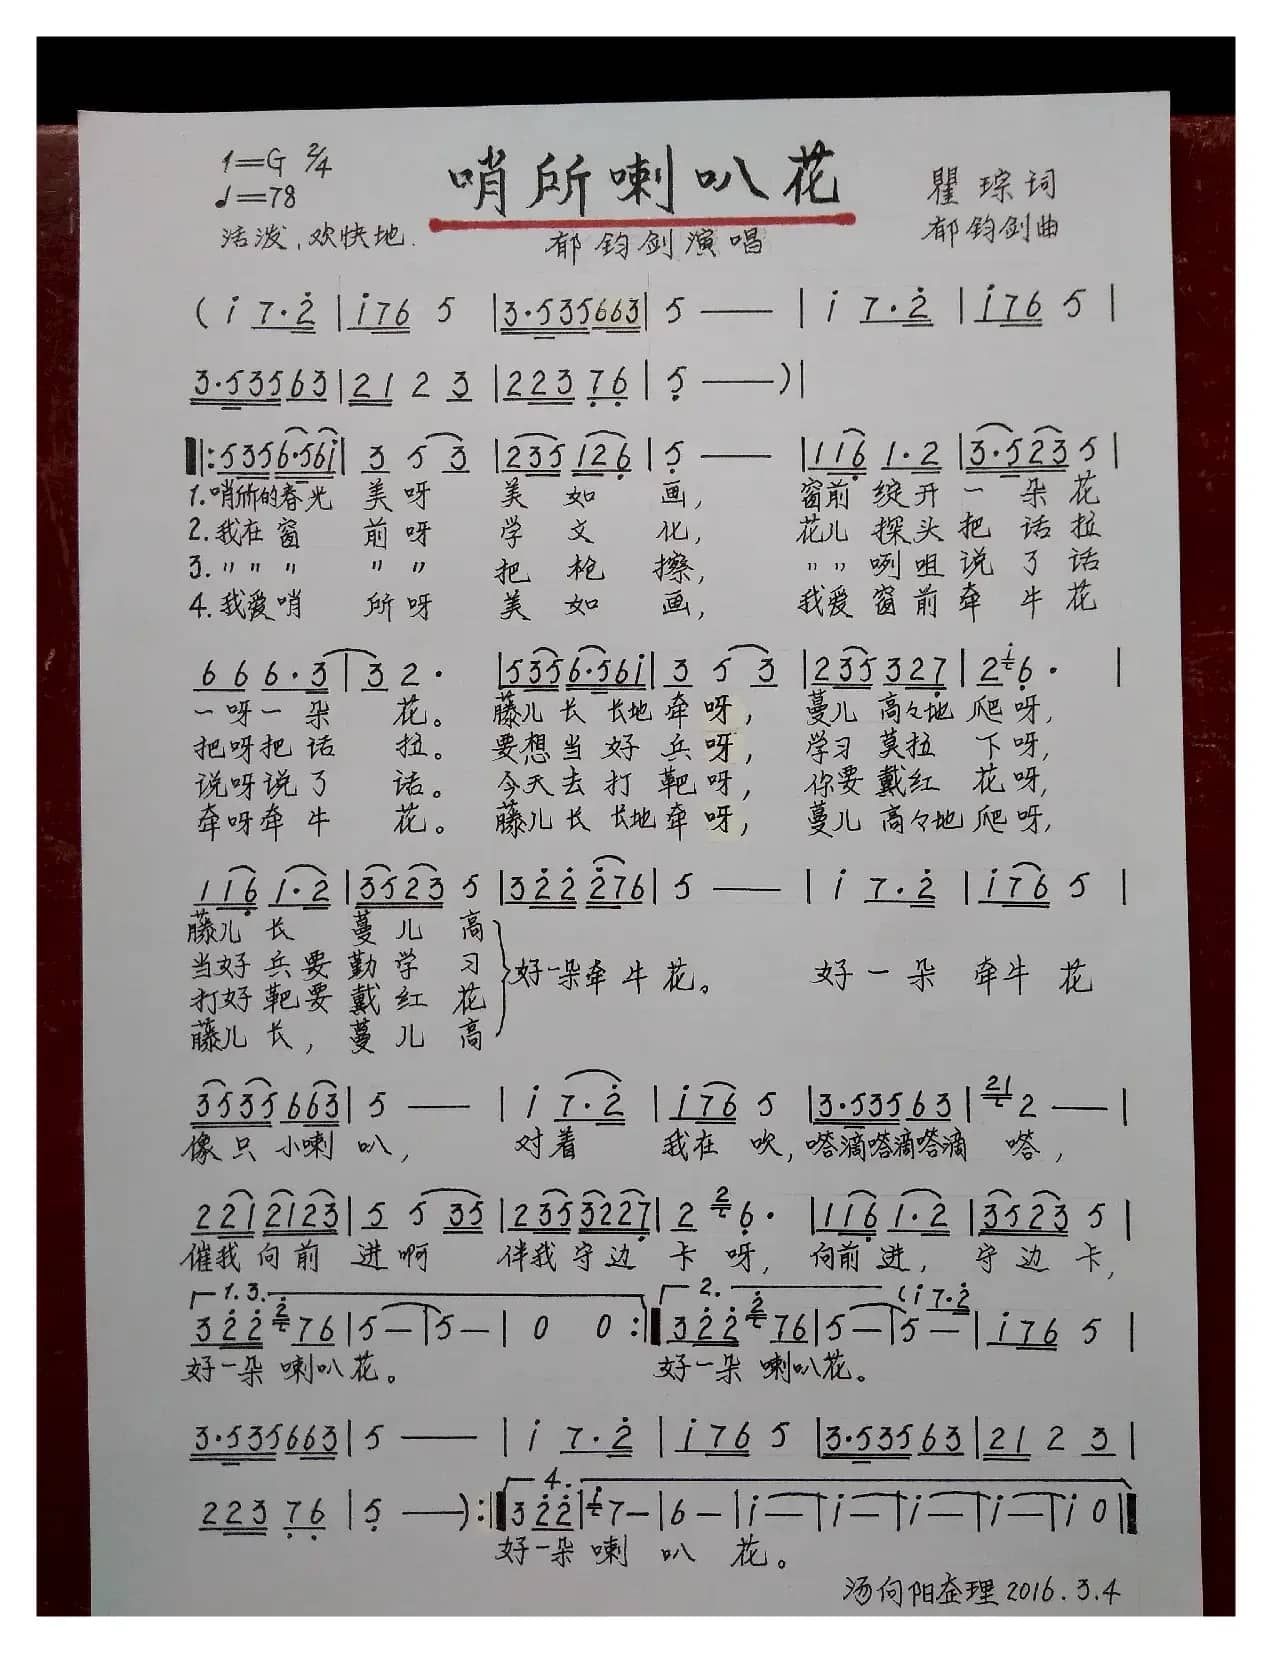 1=G 2/4
♩=78
活泼、欢快地.
哨所喇叭花
郁钧剑演唱
瞿琮词
郁钧剑曲
( i 7·2 | i 7 6 5 | 3·5 3 5 6 6 3 | 5 — | i 7·2 | i 7 6 5 |
3·5 3 5 6 3 | 2 1 2 3 | 2 2 3 7 6 | 5 — ) |
‖: 5 3 5 6·5 6 i | 3 5 3 | 2 3 5 1 2 6 | 5 — | 1 1 6 1·2 | 3·5 2 3 5 |
1.哨所的春光 美呀 美如画, 窗前绽开一朵花
2.我在窗 前呀 学文化, 花儿探头把话拉
3.〃〃〃 〃〃 把枪擦, 〃〃咧咀说了话
4.我爱哨 所呀 美如画, 我爱窗前牵牛花
6 6 6·3 | 3 2· | 5 3 5 6·5 6 i | 3 5 3 | 2 3 5 3 2 7 | 2 i 6· |
一呀一朵 花。 藤儿长长地牵呀, 蔓儿高々地爬呀,
把呀把话 拉。 要想当好兵呀, 学习莫拉下呀,
说呀说了 话。 今天去打靶呀, 你要戴红花呀,
牵呀牵牛 花。 藤儿长长地牵呀, 蔓儿高々地爬呀,
1 1 6 1·2 | 3 5 2 3 5 | 3 2 2 2 7 6 | 5 — | i 7·2 | i 7 6 5 |
藤儿长 蔓儿高
当好兵要勤学习
打好靶要戴红花
藤儿长,蔓儿高
好一朵牵牛花。 好一朵牵牛花
3 5 3 5 6 6 3 | 5 — | i 7·2 | i 7 6 5 | 3·5 3 5 6 3 | 2 1 2 — |
像只小喇叭, 对着 我在吹,嗒滴嗒滴嗒滴 嗒,
2 2 1 2 1 2 3 | 5 5 3 5 | 2 3 5 3 2 2 7 | 2 2 6· | 1 1 6 1·2 | 3 5 2 3 5 |
催我向前 进啊 伴我守边卡呀, 向前进, 守边卡,
1.3. 2. ( i 7·2
3 2 2 2 7 6 | 5 — | 5 — | 0 0 :‖ 3 2 2 2 7 6 | 5 — | 5 — | i 7 6 5 |
好一朵喇叭花。 好一朵喇叭花。
3·5 3 5 6 6 3 | 5 — | i 7·2 | i 7 6 5 | 3·5 3 5 6 3 | 2 1 2 3 |
4.
2 2 3 7 6 | 5 — ) :‖ 3 2 2 | i 7 — | 6 — | i — | i — | i — | i — | i 0 ‖
好一朵喇叭花。
汤向阳整理 2016.3.4